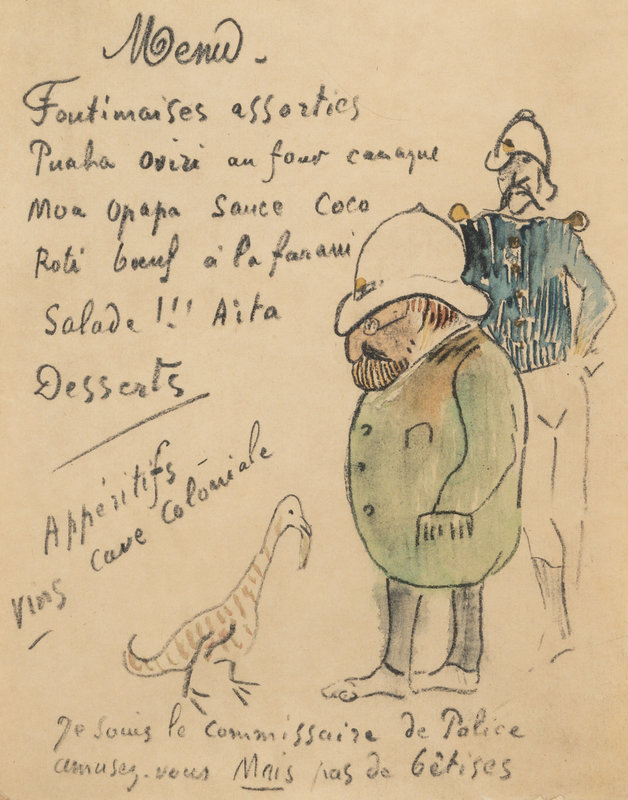 Menu.
Foutimaises assorties
Puaha oviri au four canaque
Moa opapa Sauce Coco
Roti bœuf à la farani
Salade !!! Aita
Desserts
Appéritifs
cave Colôniale
Vins
Je souis le Commissaire de Police
amusez-vous Mais pas de bêtises